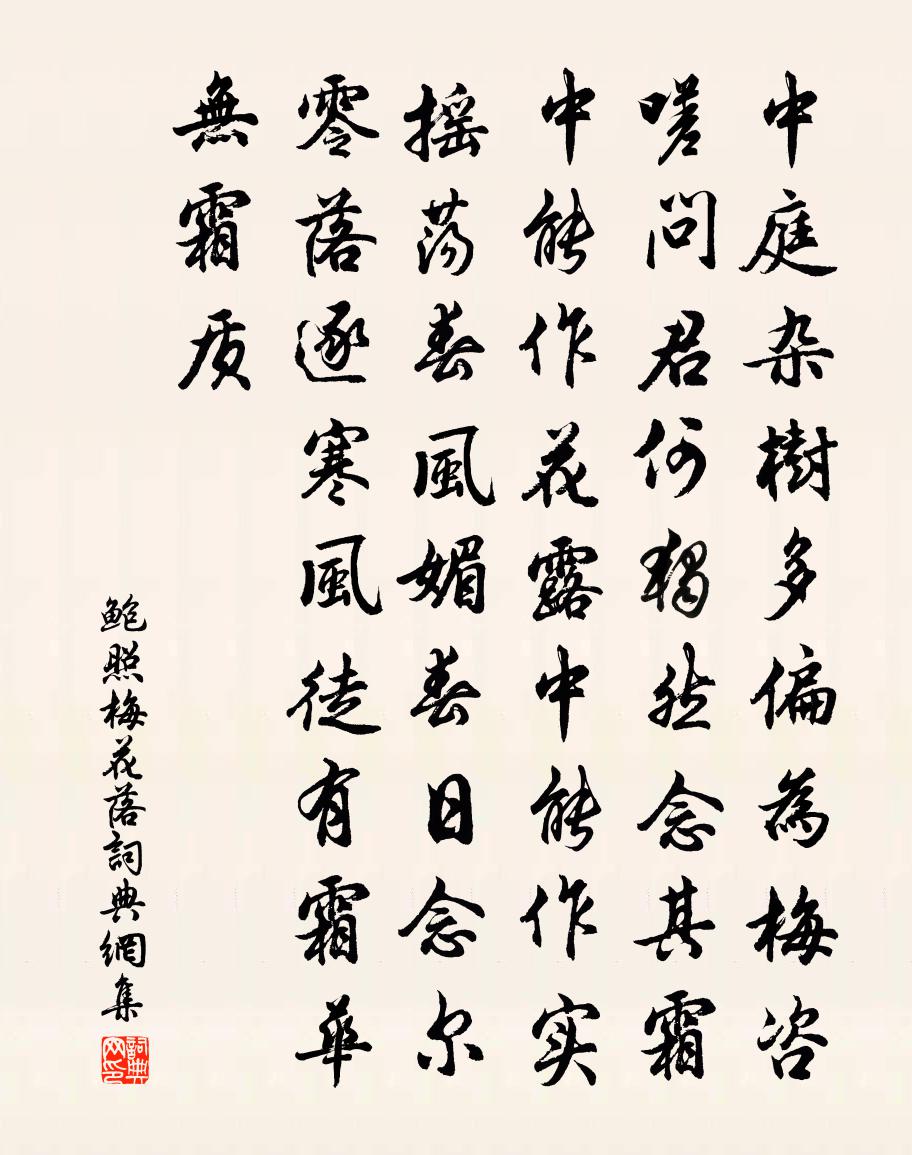 中庭杂樹多偏為梅咨
嗟問君何獨然念其霜
中能作花露中能作实
摇荡春風媚春日念尔
零落逐寒風徒有霜華
無霜质
鮑照梅花落詞典網集
詞典网印